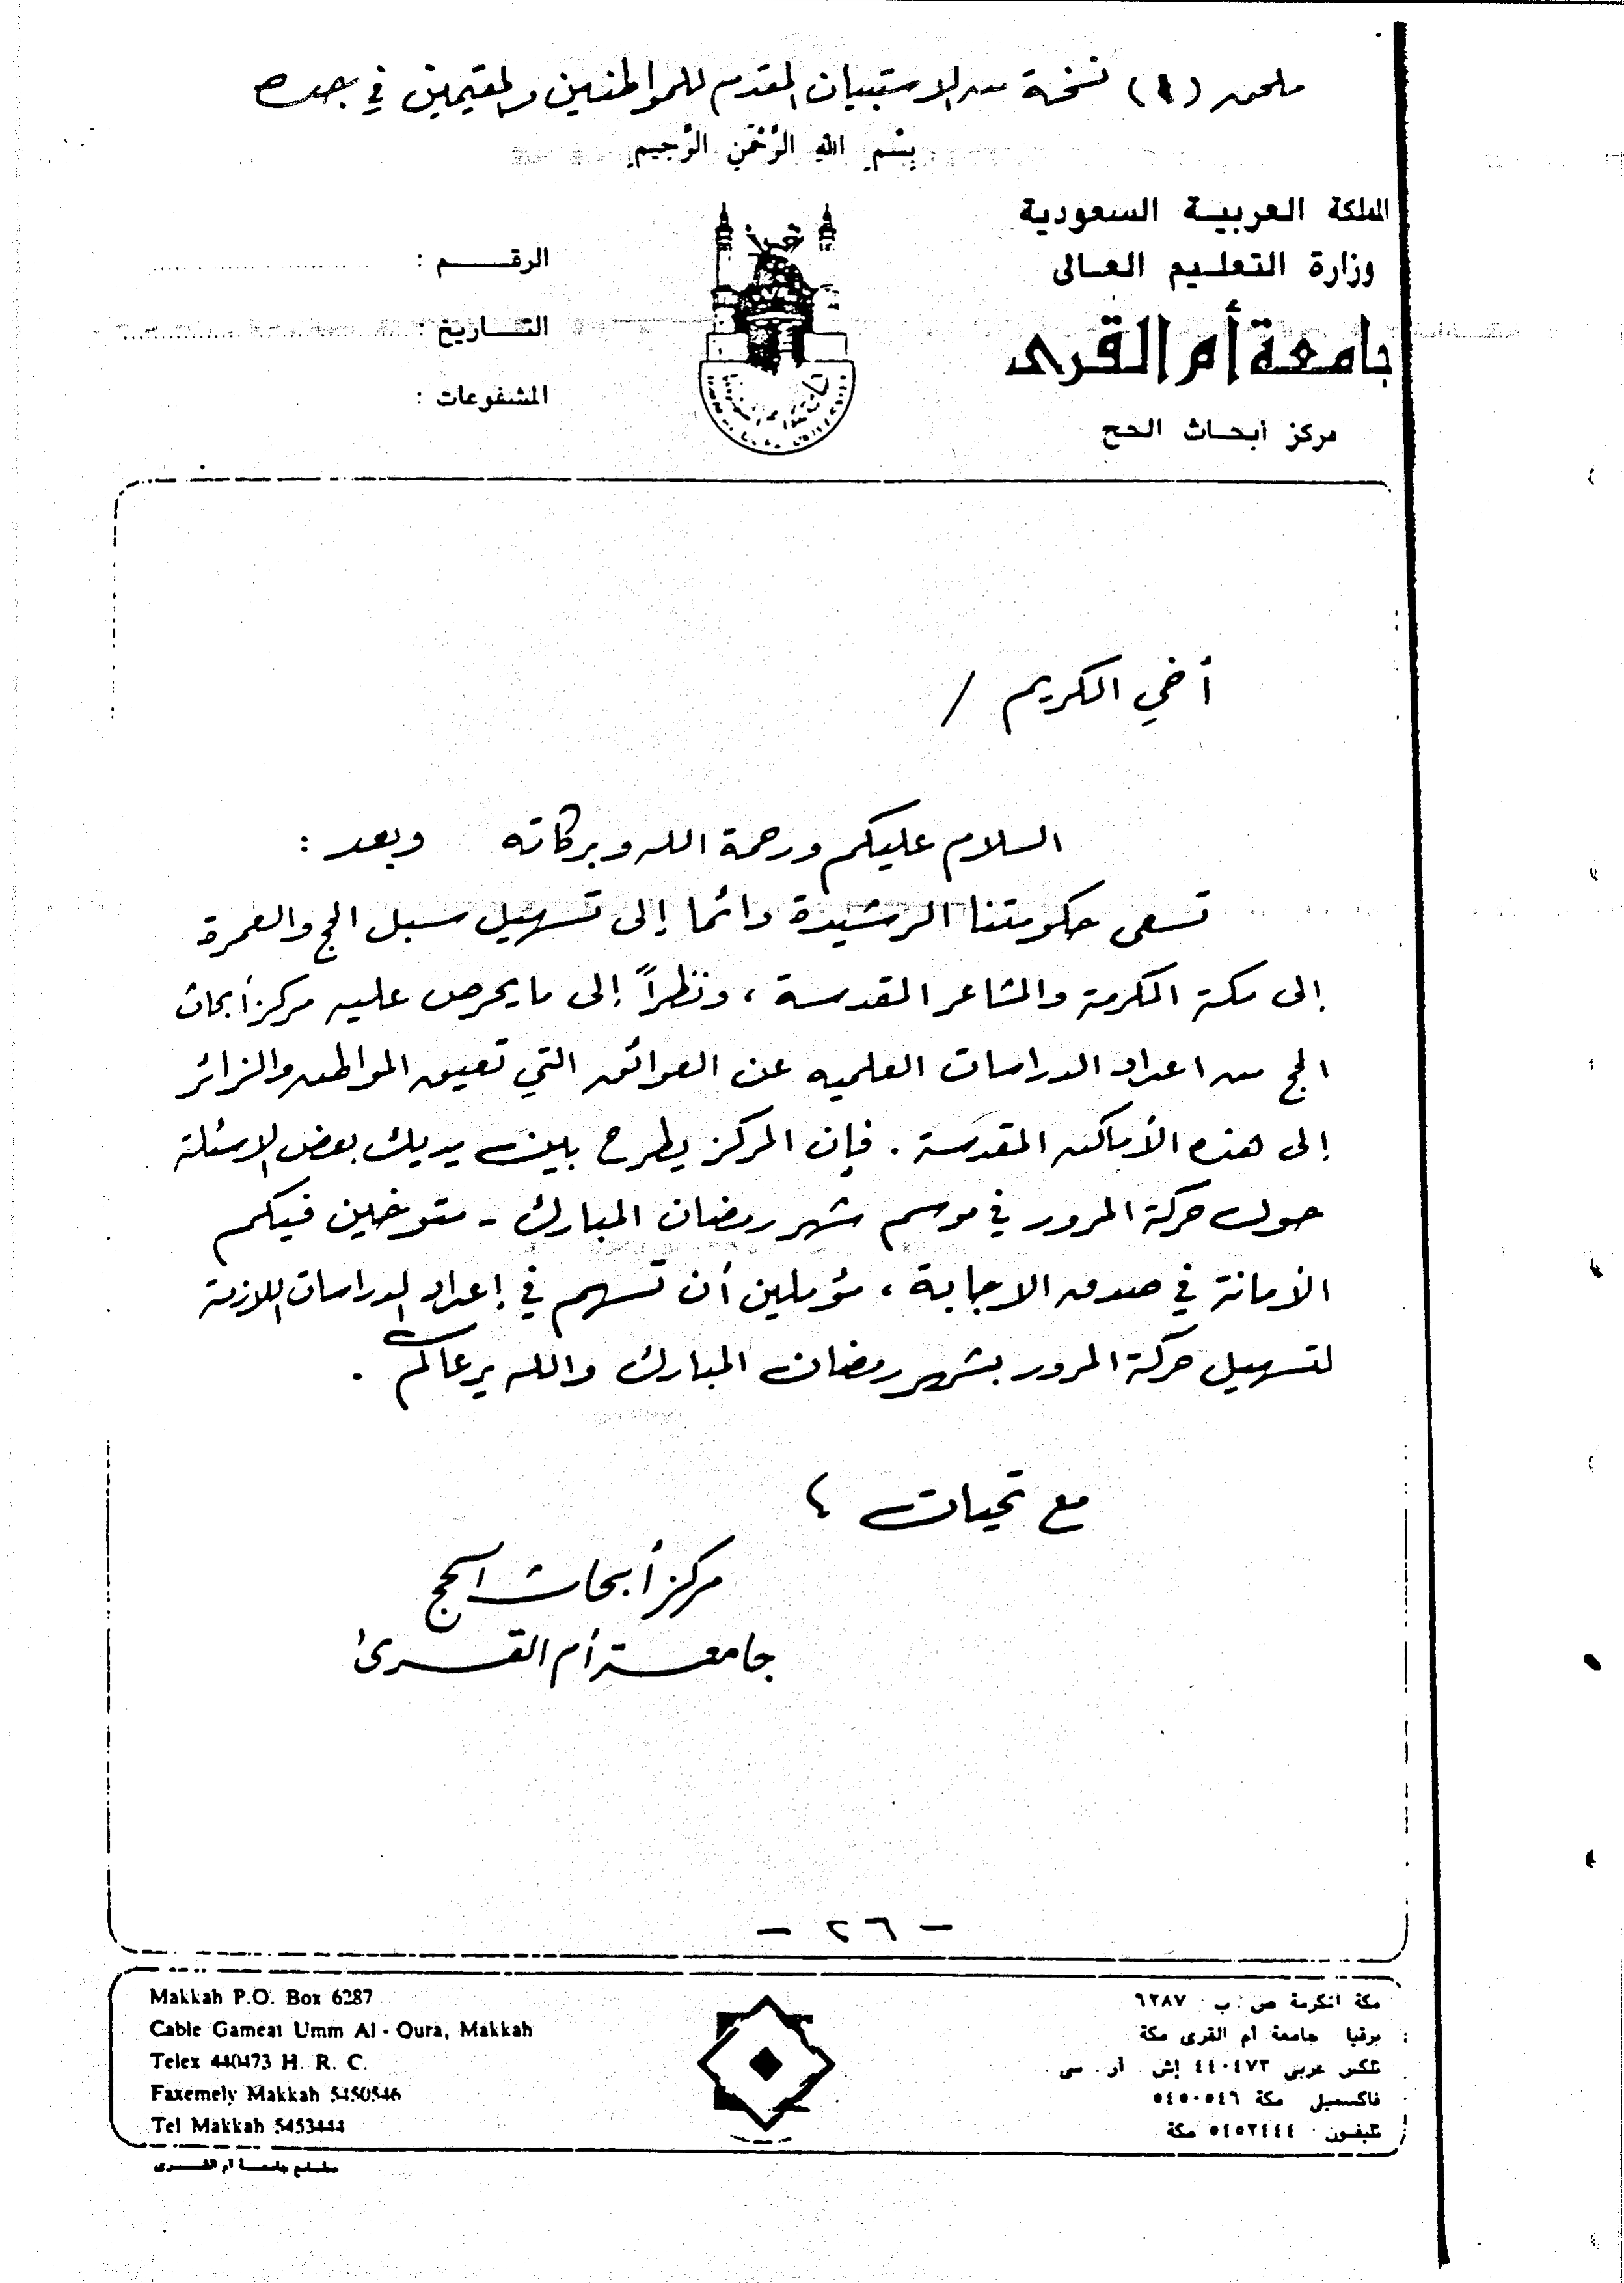 ملحق (١) نسخة من الاستبيان المقدم للمواطنين والمقيمين في جده
بِسْمِ اللهِ الرَّحْمٰنِ الرَّحِيمِ
المملكة العربيــة السعودية
وزارة التعلـيم العـالى
جامعة أم القرى
مركز أبحـاث الحج
الرقــــم :
التــــاريخ :
المشفوعات :
أخي الكريم /
السلام عليكم ورحمة الله وبركاته وبعد :
تسعى حكومتنا الرشيدة دائما إلى تسهيل سبل الحج والعمرة
إلى مكة المكرمة والمشاعر المقدسة ، ونظراً إلى ما يحرص عليه مركز أبحاث
الحج من اعداد الدراسات العلميه عن العوائق التي تعيق المواطن والزائر
إلى هذه الأماكن المقدسة . فإن المركز يطرح بين يديك بعض الاسئلة
حول حركة المرور في موسم شهر رمضان المبارك - متوخين فيكم
الأمانة في صدق الاجابة ، مؤملين أن تسهم في إعداد الدراسات اللازمة
لتسهيل حركة المرور بشهر رمضان المبارك والله يرعاكم .
مع تحيات ،
مركز أبحاث الحج
جامعة أم القرى
- ٢٦ -
Makkah P.O. Box 6287
Cable Gameat Umm Al - Qura, Makkah
Telex 440473 H. R. C.
Faxemely Makkah 5450546
Tel Makkah 5453444
مكة المكرمة ص . ب ٦٢٨٧
برقيا جامعة أم القرى مكة
تلكس عربى ٤٤٠٤٧٣ إتش . أر . سى
فاكسميلى مكة ٥٤٥٠٥٤٦
تليفـون ٥٤٥٣٤٤٤ مكة
مطـابع جامعــة أم القــرى